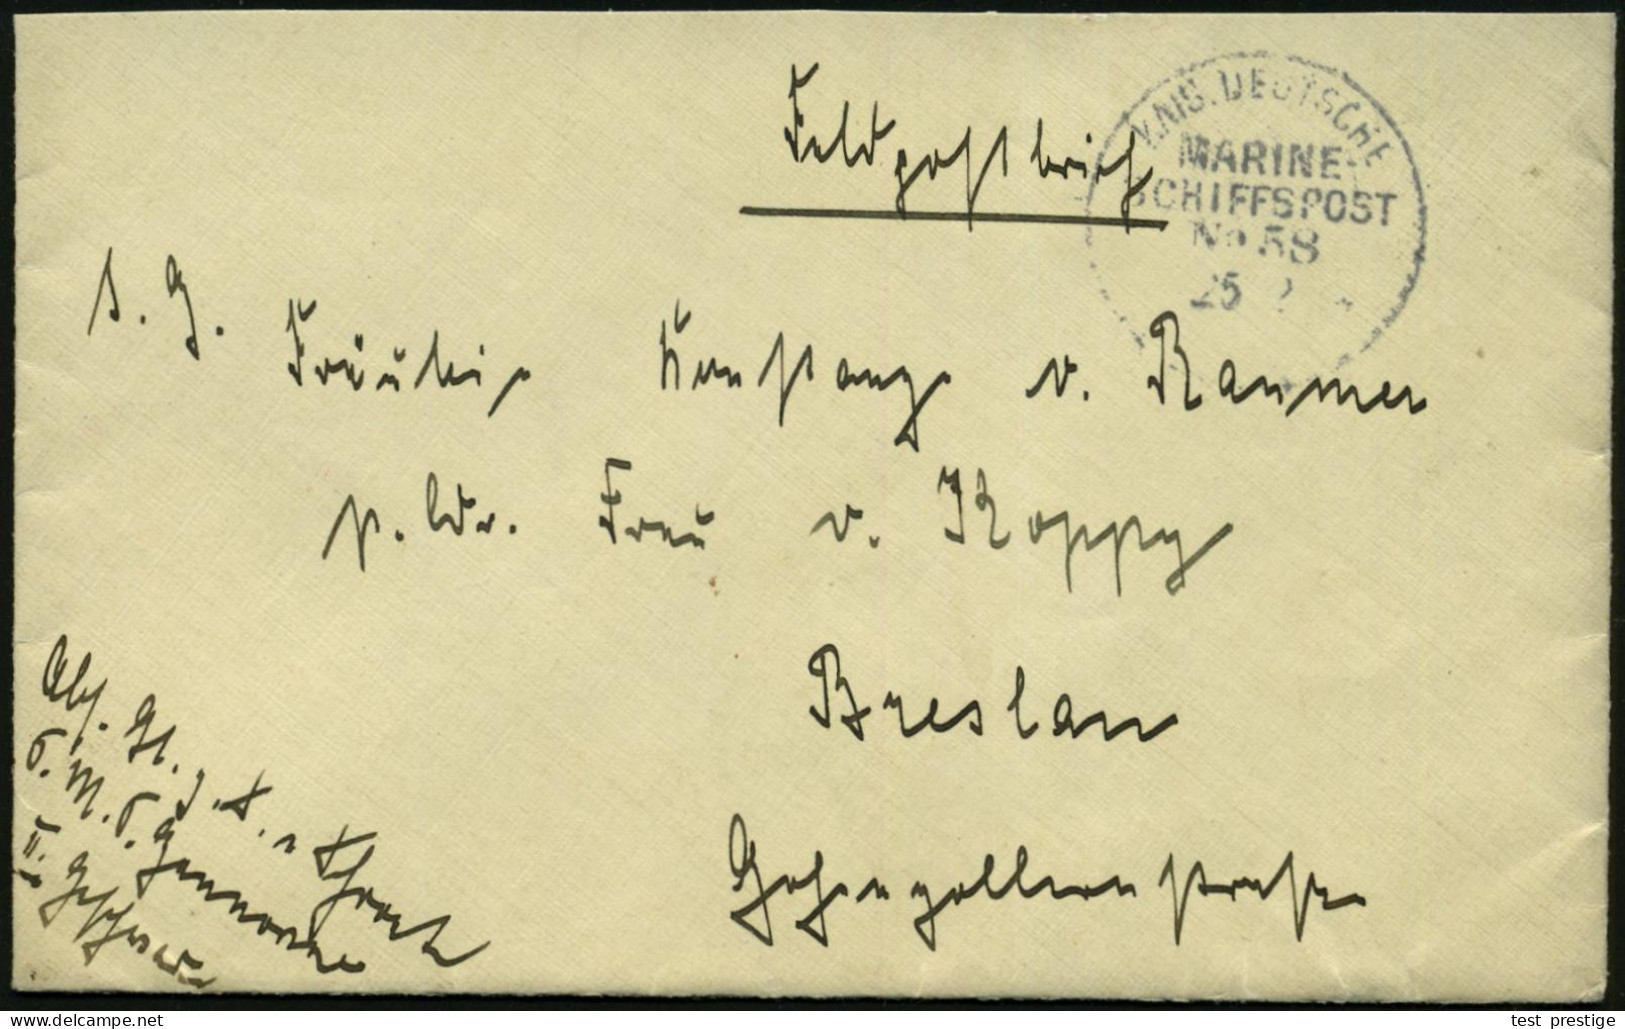 Feldpostbrief
K.NIS. DEUTSCHE
MARINE-
SCHIFFSPOST
No 58
25
S. H.
Fräulein Konstanze v. Raumer
p. Adr. Frau v. Koppy
Breslau
Hohenzollernstraße
Abs.
S.M.S. Hannover
II. Geschwader
test prestige